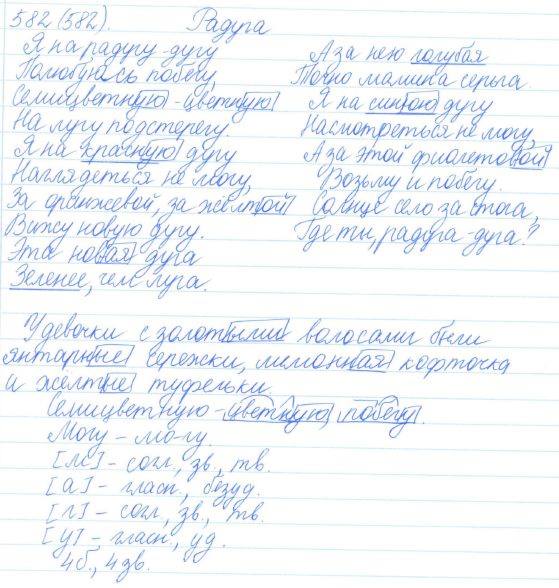 582 (582). Радуга
Я на радугу-дугу
Полюбуюсь побегу,
Семицветную-цветную
На лугу подстерегу.
Я на красную дугу
Наглядеться не могу,
За оранжевой, за желтой
Вижу новую дугу.
Эта новая дуга
Зеленее, чем луга.
А за нею голубая
Точно мамина серьга.
Я на синюю дугу
Насмотреться не могу,
А за этой фиолетовой
Возьму и побегу.
Солнце село за стога,
Где ты, радуга-дуга?
У девочки с золотыми волосами были
янтарные сережки, лимонная кофточка
и жёлтые туфельки.
Семицветную-цветную, побегу.
Могу - мо-гу.
[м] - согл., зв., тв.
[а] - гласн., безуд.
[г] - согл., зв., тв.
[у] - гласн., уд.
4 б., 4 зв.